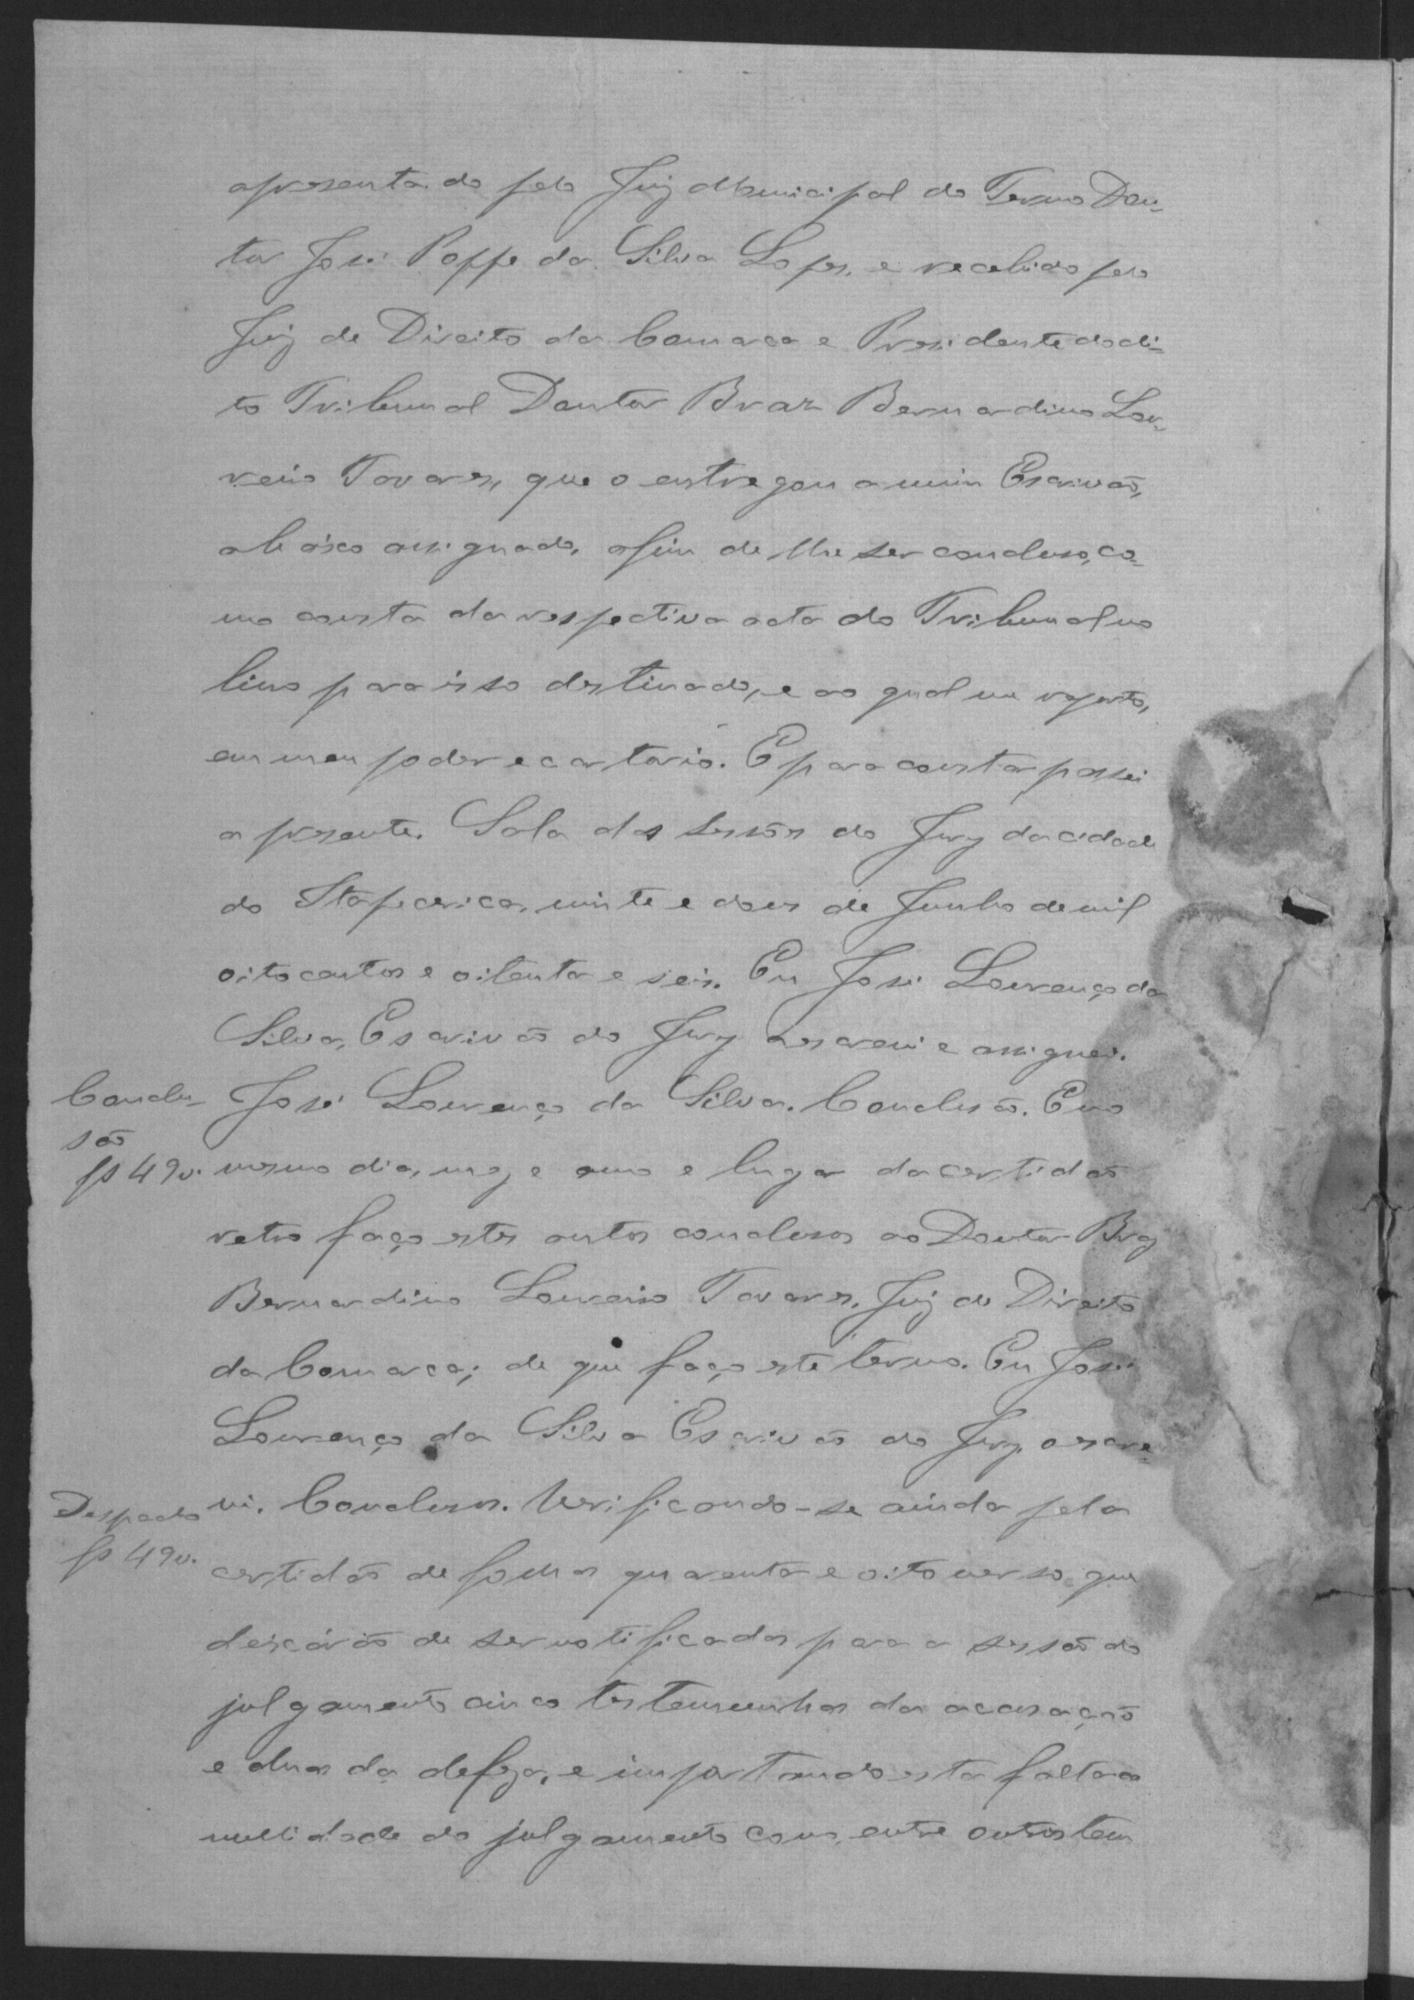 apresentado pelo Juiz Municipal do Termo Dou-
tor José Poppe da Silva Lopes, e recebido pelo
Juiz de Direito da Comarca e Presidente do di-
to Tribunal Doutor Braz Bernardino Lou-
reiro Tavares, que o entregou a mim Escrivão,
abaixo assignado, afim de lhe ser concluso, co-
mo consta da respectiva acta do Tribunal no
livro para isso destinado, e ao qual me reporto,
em meu poder e cartorio. E para constar passei
a presente. Sala das sessões do Jury da cidade
do Itapecerica, vinte e dous de Junho de mil
oitocentos e oitenta e seis. Eu José Lourenço da
Silva, Escrivão do Jury escrevi e assignei.
Conclu- José Lourenço da Silva. Conclusão. E no
são
fs 49v. mesmo dia, mez e anno e lugar da certidão
retro faço estes autos conclusos ao Doutor Braz
Bernardino Loureiro Tavares, Juiz de Direito
da Comarca; de que faço este termo. Eu José
Lourenço da Silva Escrivão do Jury o escre-
Despacho vi. Conclusos. Verificando-se ainda pela
fs 49v. certidão de folhas quarenta e oito verso, que
deixárão de ser notificadas para a sessão do
julgamento cinco testemunhas da accusação
e duas da defeza, e importando esta falta a
nullidade do julgamento como, entre outros tem